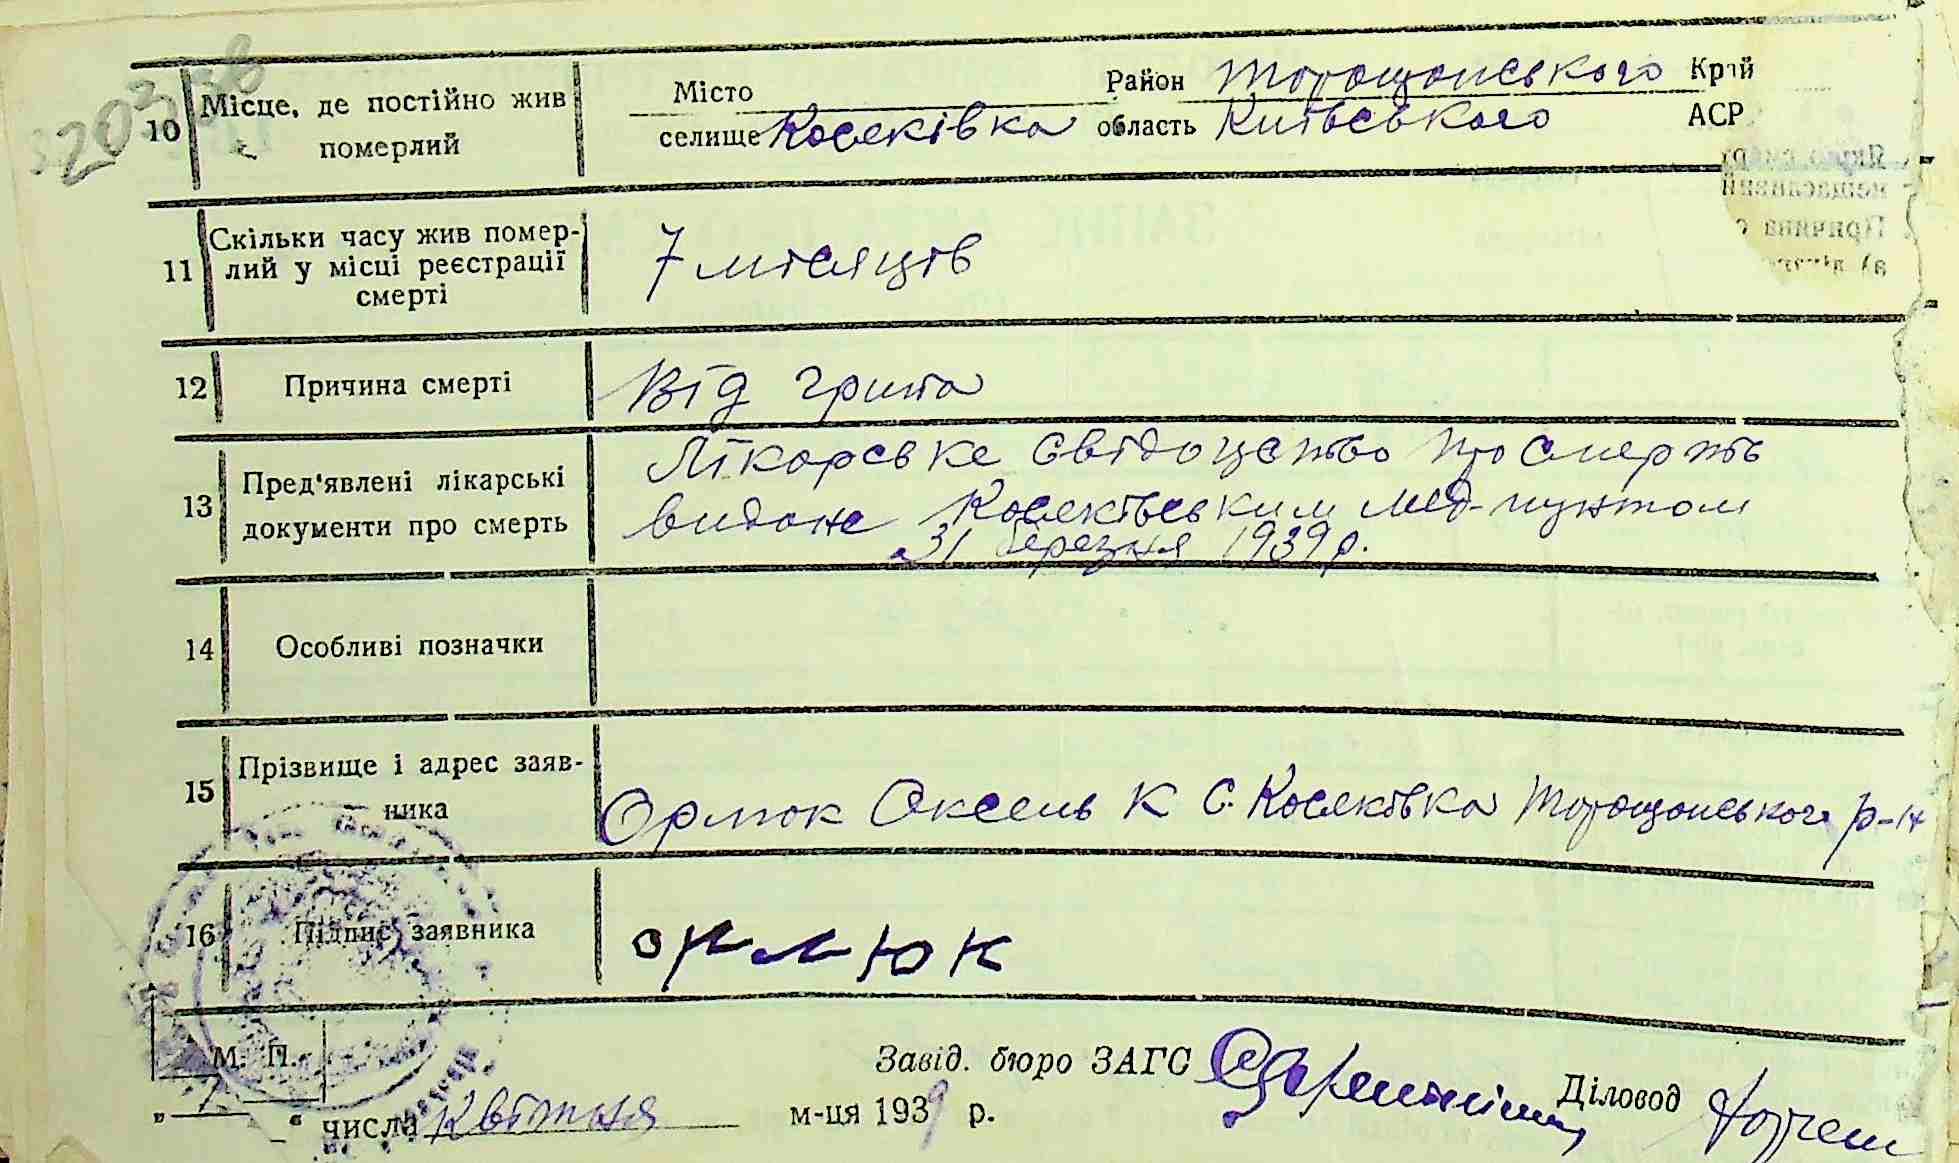 10 Місце, де постійно жив померлий
Місто Район Торощанського Край
селище Косяківка область Київського АСР
11 Скільки часу жив помер-
лий у місці реєстрації
смерті
7 місяців
12 Причина смерті
Від грипа
13 Пред'явлені лікарські
документи про смерть
Лікарське свідоцство про смерть
видане Косяківським мед-пунктом
31 березня 1939 р.
14 Особливі позначки
15 Прізвище і адрес заяв-
ника
Орлюк Оксень К С. Косяківка Торощанського р-н
16 Підпис заявника
орлюк
М. П.
Завід. бюро ЗАГС
Діловод
„ 1 “ числа Квітня м-ця 1939 р.